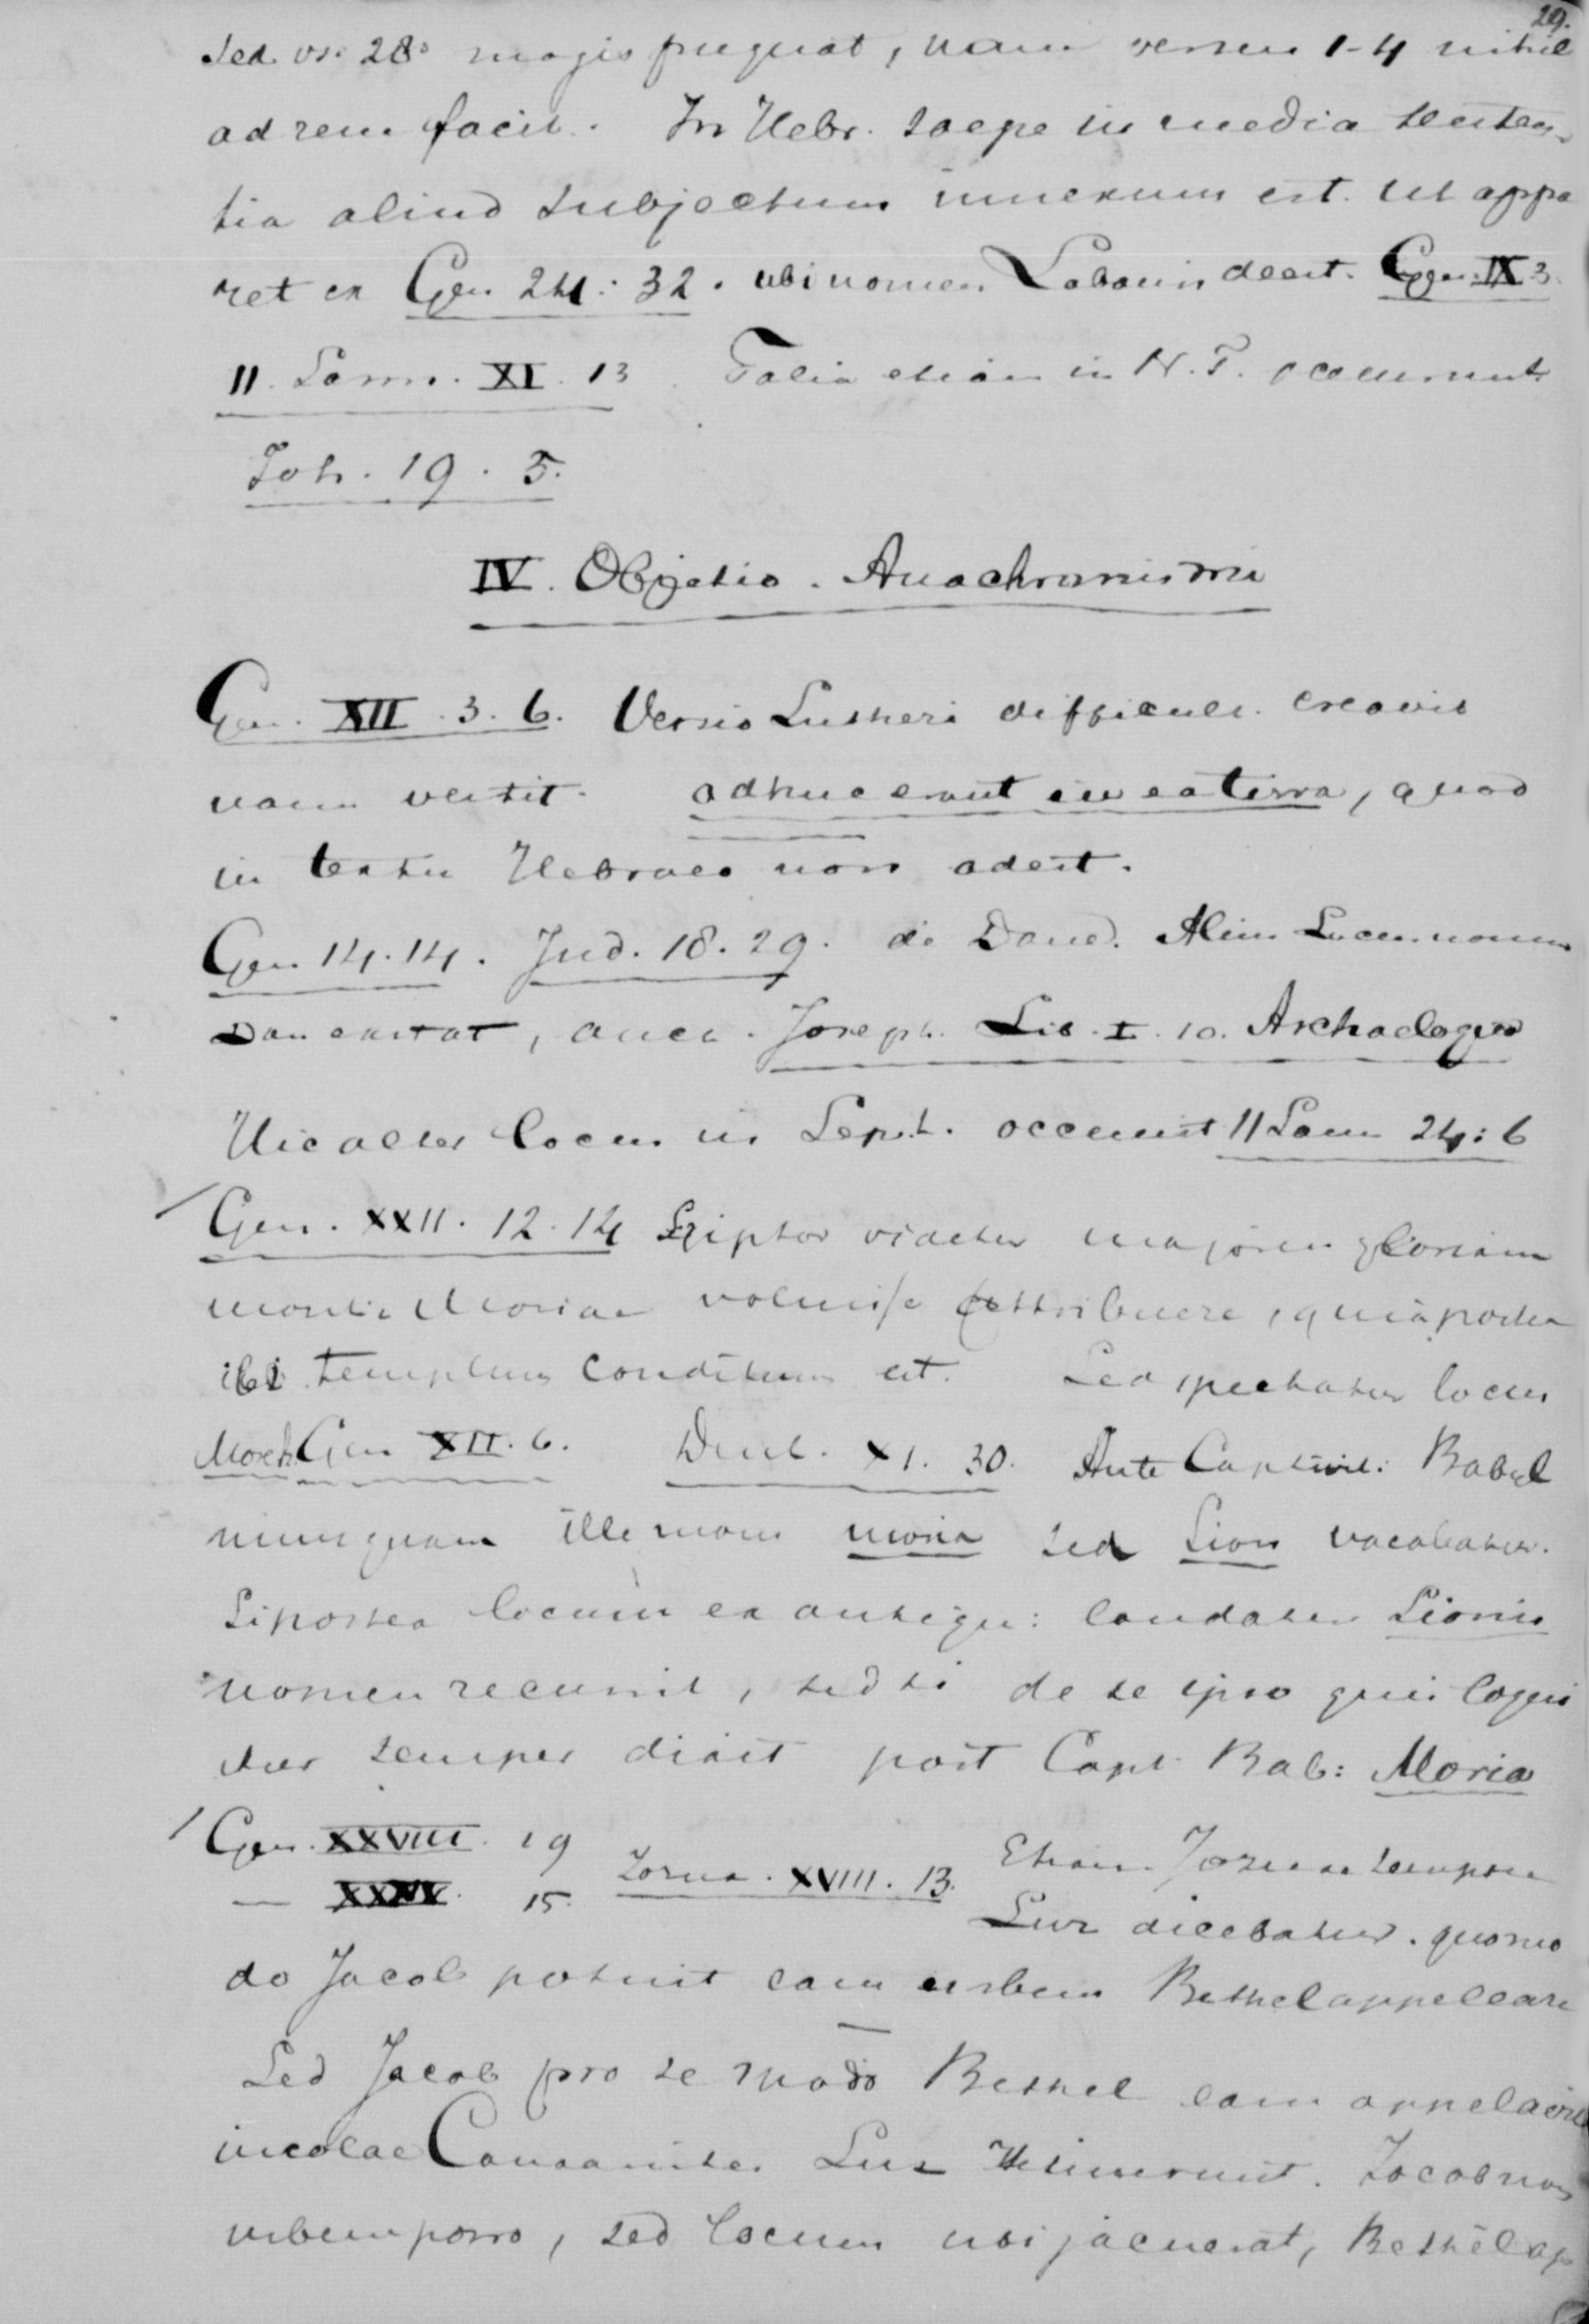 29.
Sed vs. 28 magis pugnat, nam versus 1-4 nihil
ad rem facit. In Hebr. saepe in media senten-
tia aliud subjectum innexum est. ut appa
ret ex Gen 24: 32. ubi nomen Labanis deest. Gen. IX 3.
II. Sam. XI. 13. Talia etiam in N. T. occurrunt
Joh. 19. 5.
IV. Objectio. Anachronismi
Gen. XII. 3. 6. Versio Lutheri difficult. creavit
nam vertit. adhuc erant in ea terra, quod
in textu Hebraeo non adest.
Gen 14. 14. Jud. 18. 29. de Dane. Alius Locus nomine
Dan exstat, auct. Joseph. Lib. I. 10. Archaelogia
Hic alter locus in Sept. occurrit II Sam 24: 6
Gen. XXII. 12. 14 Scriptor videtur majorem gloriam
monti Moriae voluisse attribuere, quia postea
ibi templum conditum est. Sed spectatur locus
Moreh Gen XII. 6. Deut. XI. 30. Ante Captivit: Babyl
nunquam ille mons moria sed Sion vocabatur.
Si postea locum ex antiqu: laudatur Sionis
nomen recurrit, sed si de se ipso quis loqui
tur semper dicit post Capt. Bab: Moria
Gen. XXVIII. 19 Josua. XVIII. 13. Etiam Josuae tempore
— XXXV. 15. Luz dicebatur. quomo
do Jacob potuit eam urbem Bethel appellare
Sed Jacob pro se modo Bethel eam appelavit
incolae Canaanitae Luz retinuerunt. Jacob non
urbem porro, sed locum ubi jacuerat, Bethel ap